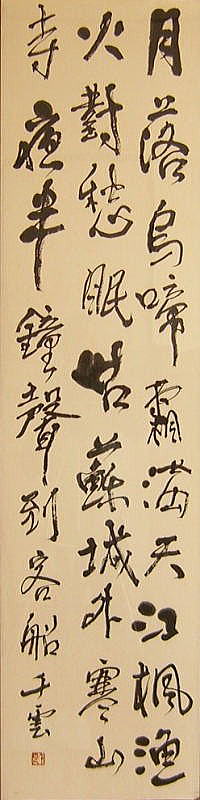 月落烏啼霜滿天江楓漁
火對愁眠姑蘇城外寒山
寺夜半鐘聲到客船雲